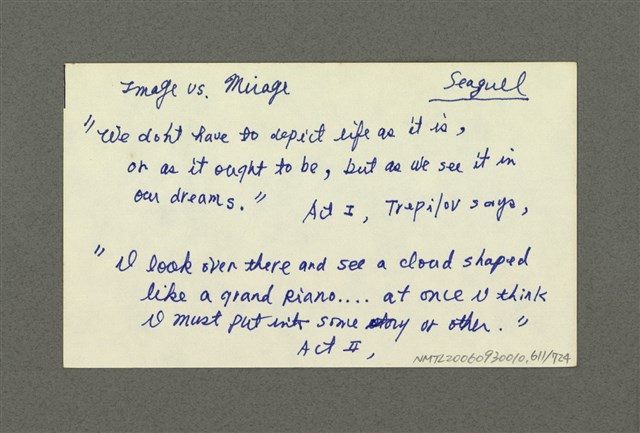 Image vs. Mirage
Seagull
"We don't have to depict life as it is,
or as it ought to be, but as we see it in
our dreams."
Act I, Treplov says,
"I look over there and see a cloud shaped
like a grand piano.... at once I think
I must put into some story or other."
Act II,
NMTL20060930010,611/724